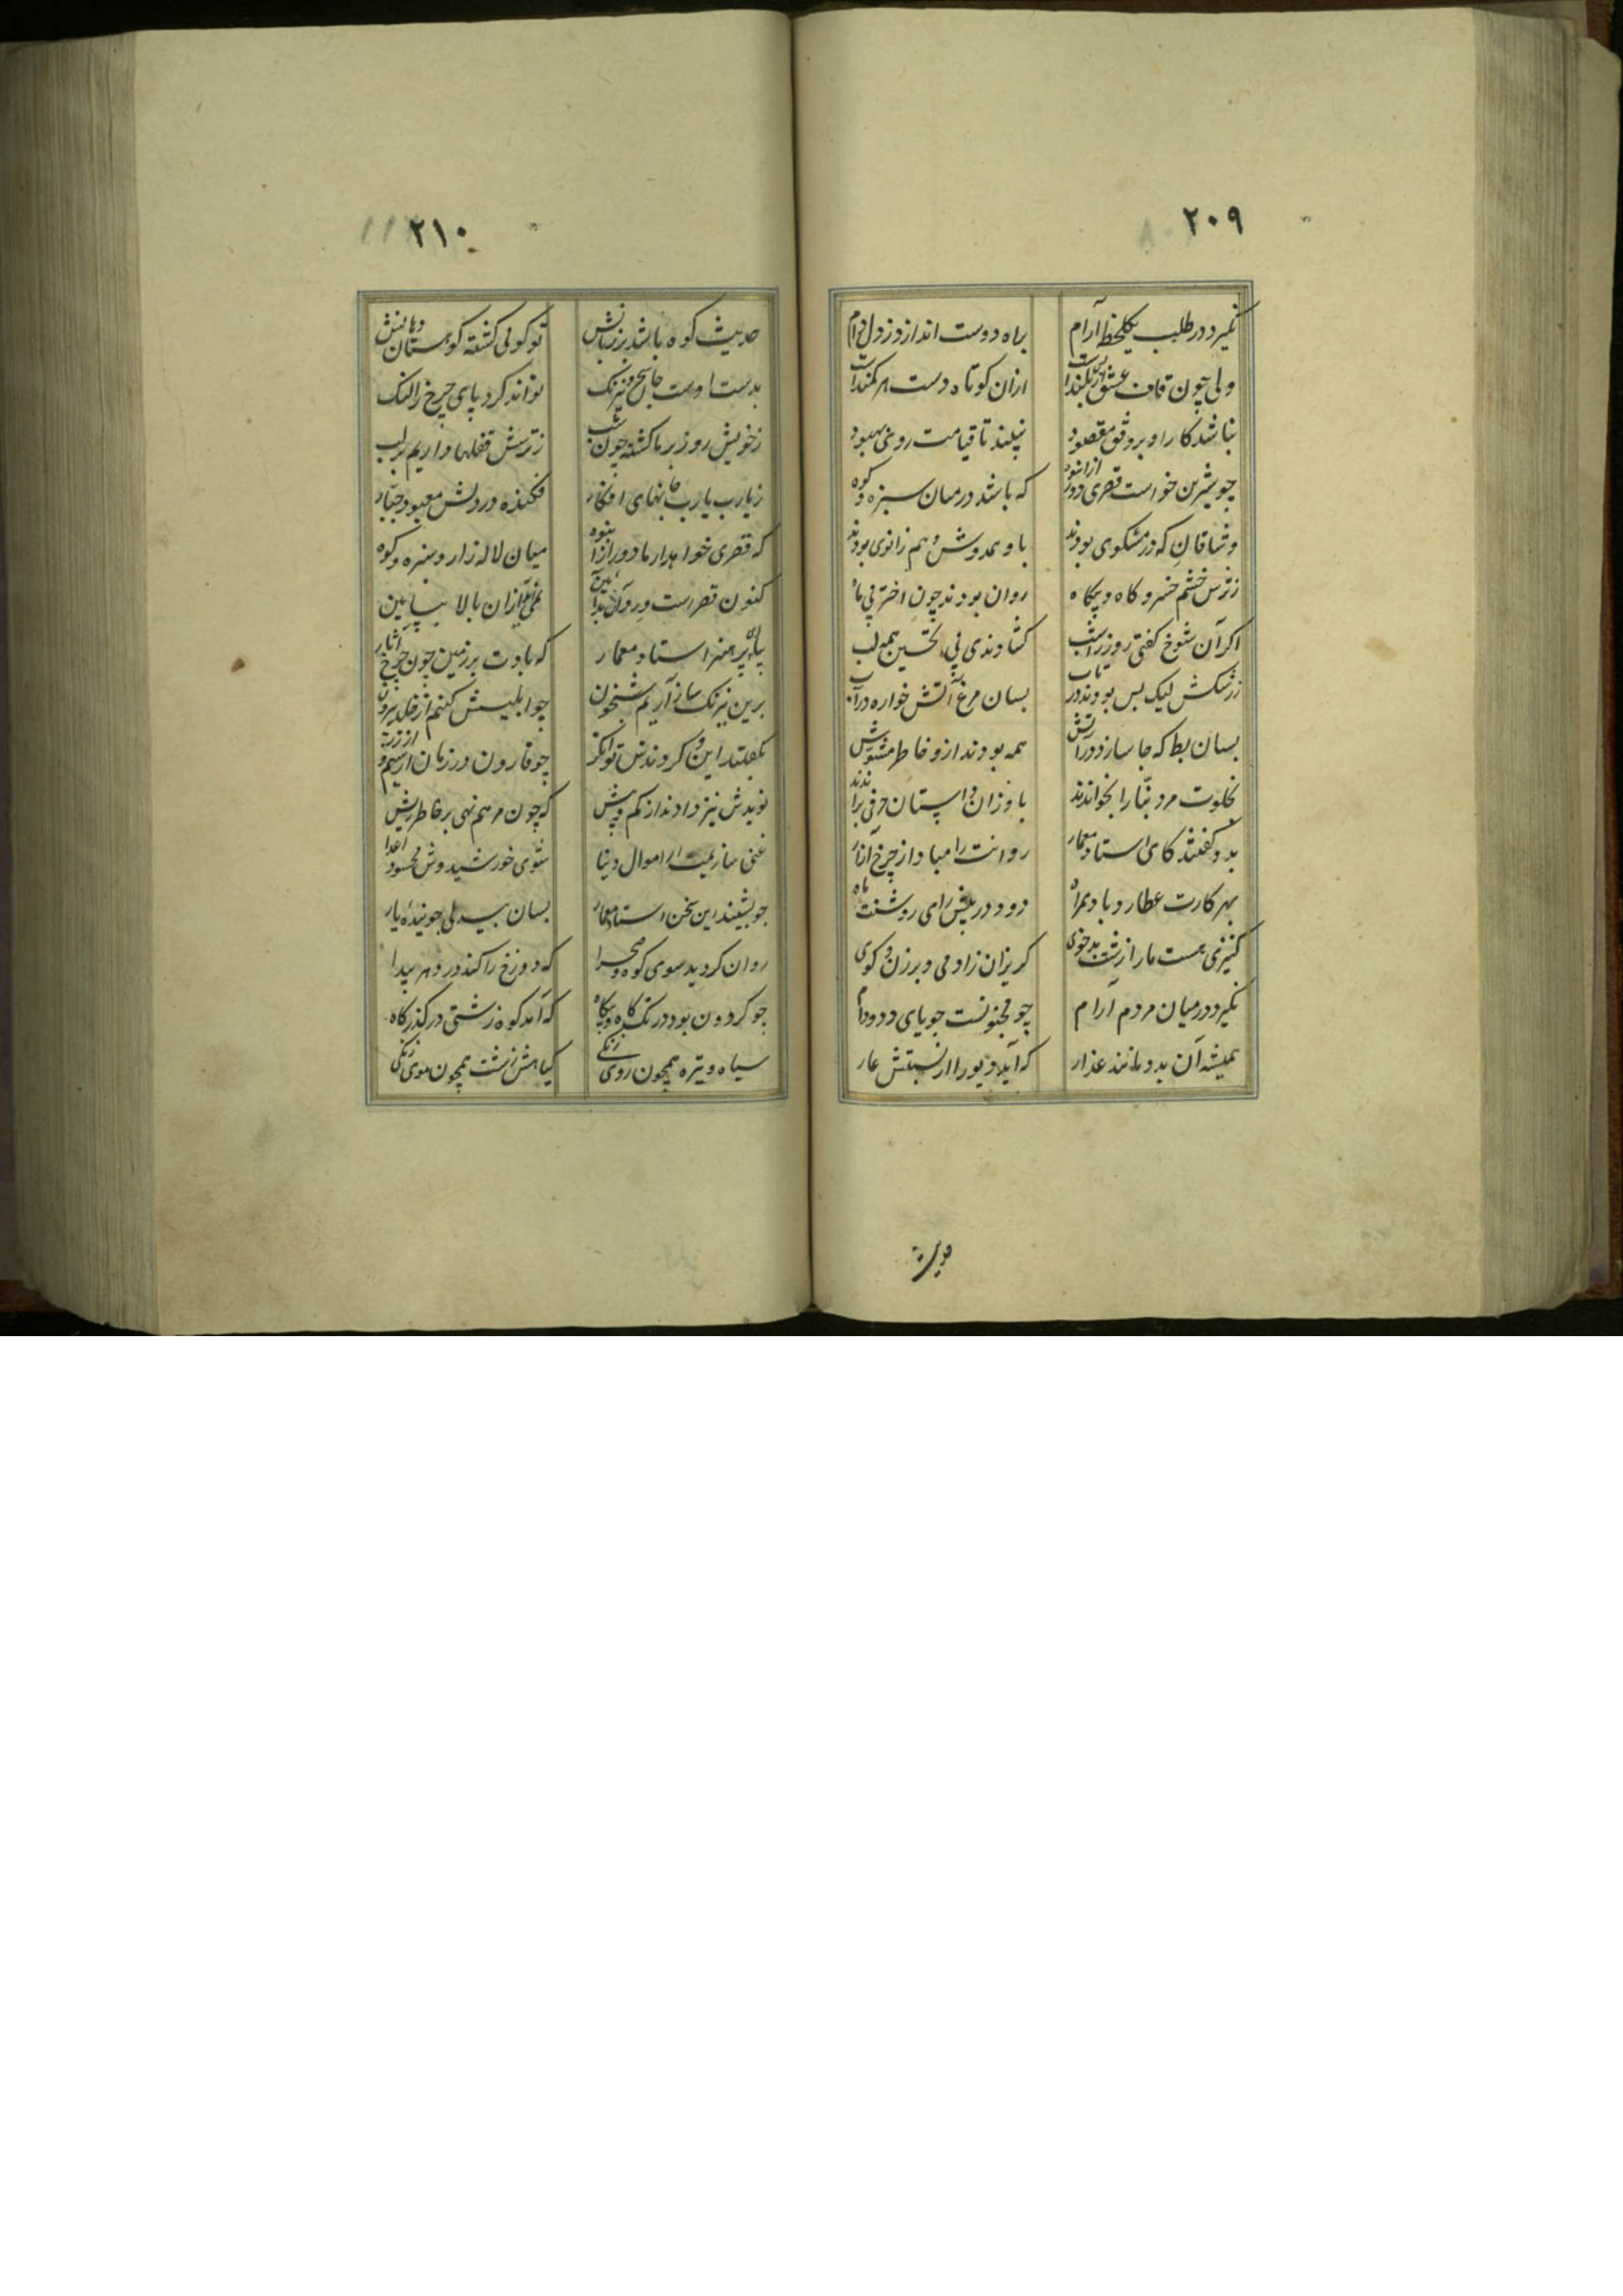 ۲۰۹
نگیرد در طلب یکلحظه آرام براه دوست اندازد ز دل دام
ولی چون قاف عشق بلندست ازان کوتاه دست هر کمندست
نباشد کار او بر وفق مقصود نبیند تا قیامت روی بهبود
چو شیرین خواست قصری دور از انبوه که باشد در میان سبزه و کوه
وشاقان که در مشکوی بودند با و همدوش و هم زانوی بودند
ز ترس خشم خسرو گاه و بیگاه روان بودند چون اختر پی ماه
اگر آن شوخ گفتی روز را شب گشادندی پی تحسین همه لب
ز رشکش لیک بس بودند در تاب بسان مرغ آتش خواره در آب
بسان بط که جا سازد در آتش همه بودند ازو خاطر مشوش
بخلوت مرد بنا را بخواندند با و زان داستان حرفی براندند
بدو گفتند کای استاد معمار روانت را مباد از چرخ آزار
بهر کارت عطارد باد همراه درود در پیش رای روشنت ماه
کنیزی هست ما را زشت بدخوی گریزان ز آدمی و برزن و کوی
نگیرد در میان مردم آرام چو مجنونست جویای دد و دام
همیشه آن بد و مانند عذار که آید دیو را از نسبتش عار
۲۱۰
حدیث کوه باشد بر زبانش تو گوئی گشته کوهستان دهانش
بدست اوست جا سحر و نیرنگ تواند کرد پای چرخ را لنگ
ز خویش روز بر ما گشته چون شب ز ترسش قفلها داریم بر لب
ز یارب یارب جانهای افکار فکنده در دلش معبود جبار
که قصری خواهد از ما دور از انبوه میان لاله زار و سبزه و کوه
کنون قصرست و در وی آن بدآیین نمی آید ازان بالا بپایین
بیا ای پر هنر استاد معمار که بادت بر زمین چون چرخ آثار
برین نیرنگ ساز آریم شبخون چو ابلیسش کنیم از خلد بیرون
بگفتند این و کردندش توانگر چو قارون در زمان از سیم و از زر
نویدش نیز دادند از کم و بیش که چون مرهم نهی بر خاطر ریش
غنی سازیمت از اموال دنیا شوی خورشید وش محسود اعدا
چو بشنید این سخن استاد معمار بسان بیدلی جوینده یار
روان گردید سوی کوه و صحرا که دوزخ را کند در دهر پیدا
چو گردون بود در تک گاه و بیگاه که آمد کوه زشتی در گذرگاه
سیاه و تیره همچون روی زنگی گیاهش زشت همچون موی زنگی